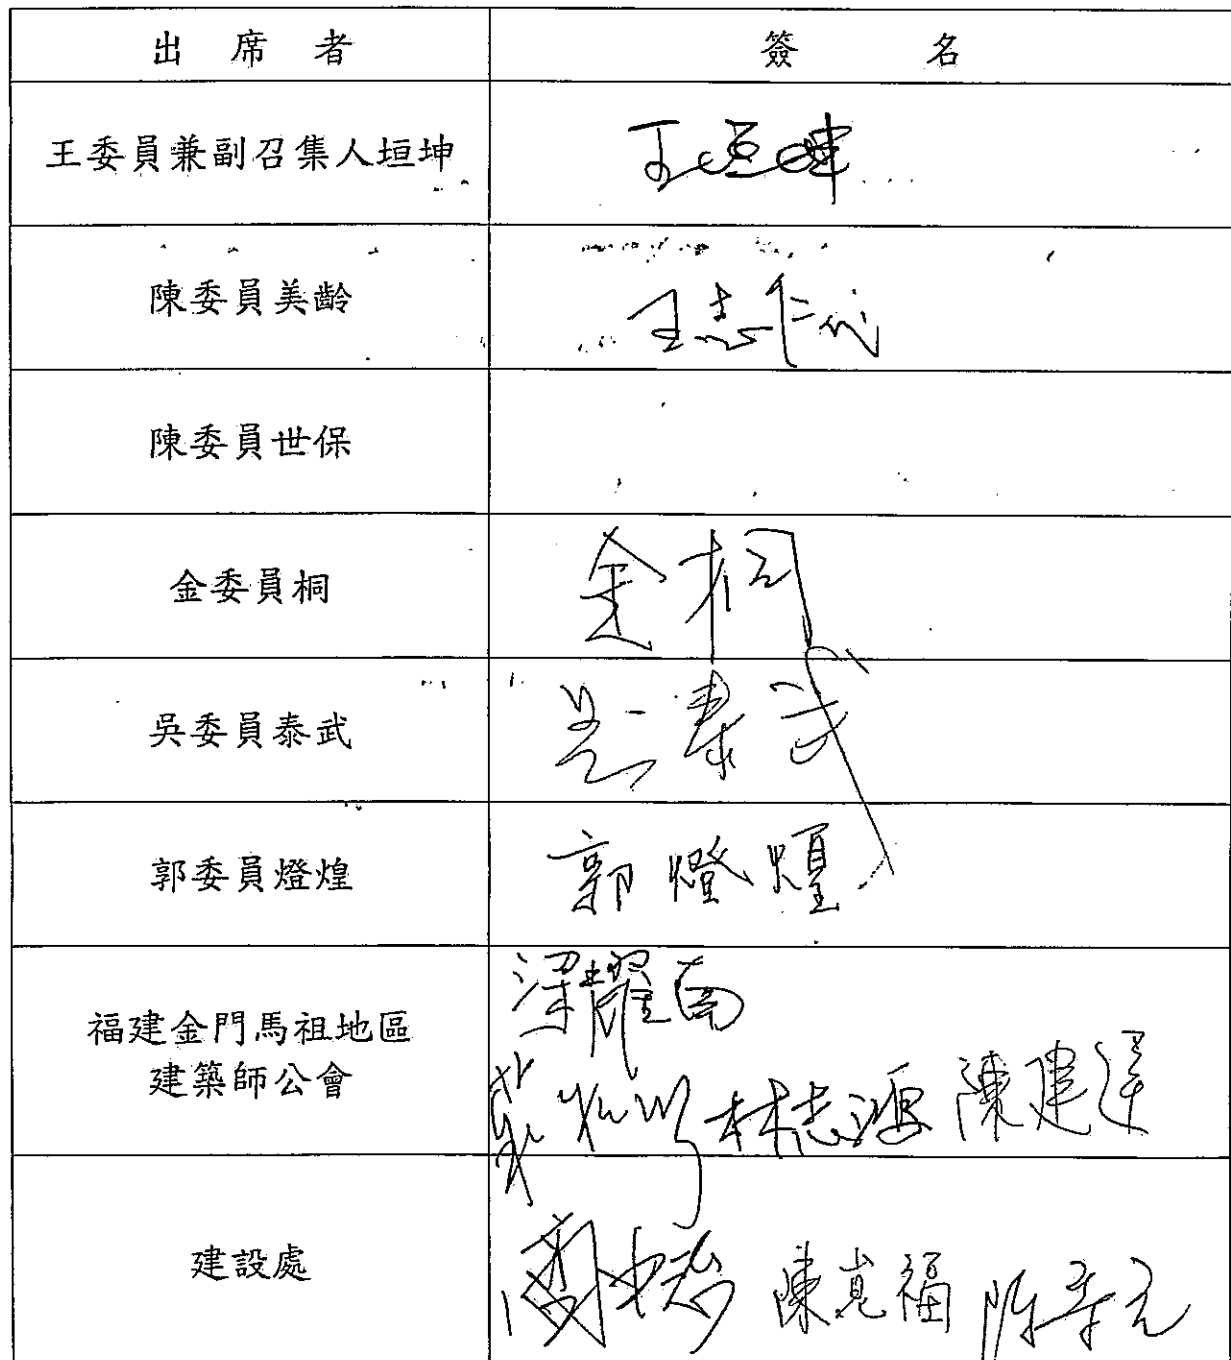 出席者 簽名
王委員兼副召集人垣坤 王垣坤
陳委員美齡 王志仁代
陳委員世保
金委員桐 金桐
吳委員泰武 吳泰武
郭委員燈煌 郭燈煌
福建金門馬祖地區
建築師公會
梁耀南
林志鴻 陳建逞
建設處 陳嵬福